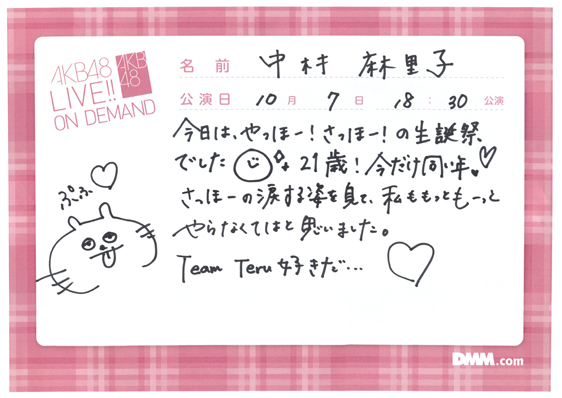 AKB48
LIVE!!
ON DEMAND
AKB
48
名前 中村 麻里子
公演日 10月 7日 18:30 公演
今日は、やっほー!さっほー!の生誕祭
でした 21歳!今だけ同い年。
さっほーの涙する姿を見て、私ももっとも一っと
やらなくてはと思いました。
Team Teru 好きだ…
ぷふ
DMM.com